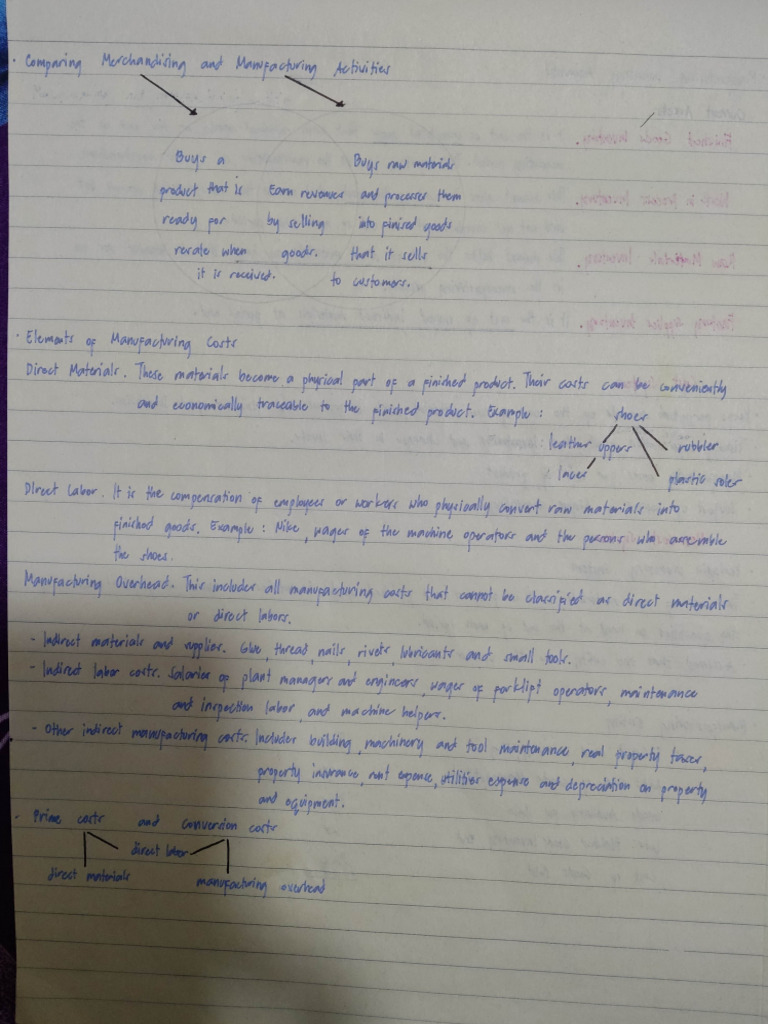 · Comparing Merchandising and Manufacturing Activities
Buys a
product that is
ready for
resale when
it is received.
Earn revenues
by selling
goods.
Buys raw materials
and processes them
into finised goods
that it sells
to customers.
· Elements of Manufacturing Costs
Direct Materials. These materials become a physical part of a finished product. Their costs can be conveniently
and economically traceable to the finished product. Example : shoes
: leather uppers rubber
: laces plastic soles
Direct Labor. It is the compensation of employees or workers who physically convert raw materials into
finished goods. Example : Nike, wages of the machine operators and the persons who assemble
the shoes.
Manufacturing Overhead. This includes all manufacturing costs that cannot be classified as direct materials
or direct labors.
- Indirect materials and supplies. Glue, thread, nails, rivets, lubricants and small tools.
- Indirect labor costs. Salaries of plant managers and engineers, wages of forklift operators, maintenance
and inspection labor, and machine helpers.
- Other indirect manufacturing costs. Includes building, machinery and tool maintenance, real property taxes,
property insurance, rent expense, utilities expense and depreciation on property
and equipment.
· Prime costs and conversion costs
direct labor
direct materials
manufacturing overhead
Finished Goods Inventory.
Work in Process Inventory.
Raw Materials Inventory.
Factory Supplies Inventory.